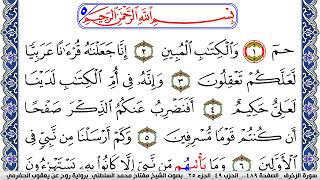 بِسْمِ ٱللَّهِ ٱلرَّحْمَٰنِ ٱلرَّحِيمِ
حمٓ ١ وَٱلْكِتَٰبِ ٱلْمُبِينِ ٢ إِنَّا جَعَلْنَٰهُ قُرْءَٰنًا عَرَبِيًّا
لَعَلَّكُمْ تَعْقِلُونَ ٣ وَإِنَّهُۥ فِىٓ أُمِّ ٱلْكِتَٰبِ لَدَيْنَا
لَعَلِىٌّ حَكِيمٌ ٤ أَفَنَضْرِبُ عَنكُمُ ٱلذِّكْرَ صَفْحًا
أَن كُنتُمْ قَوْمًا مُّسْرِفِينَ ٥ وَكَمْ أَرْسَلْنَا مِن نَّبِىٍّ فِى
ٱلْأَوَّلِينَ ٦ وَمَا يَأْتِيهُم مِّن نَّبِىٍّ إِلَّا كَانُوا۟ بِهِۦ يَسْتَهْزِءُونَ
سورة الزخرف . الصفحة ٤٨٩ . الحزب ٤٩ . الجزء ٢٥ . بصوت الشيخ مفتاح محمد السلطني . برواية روح عن يعقوب الحضرمي